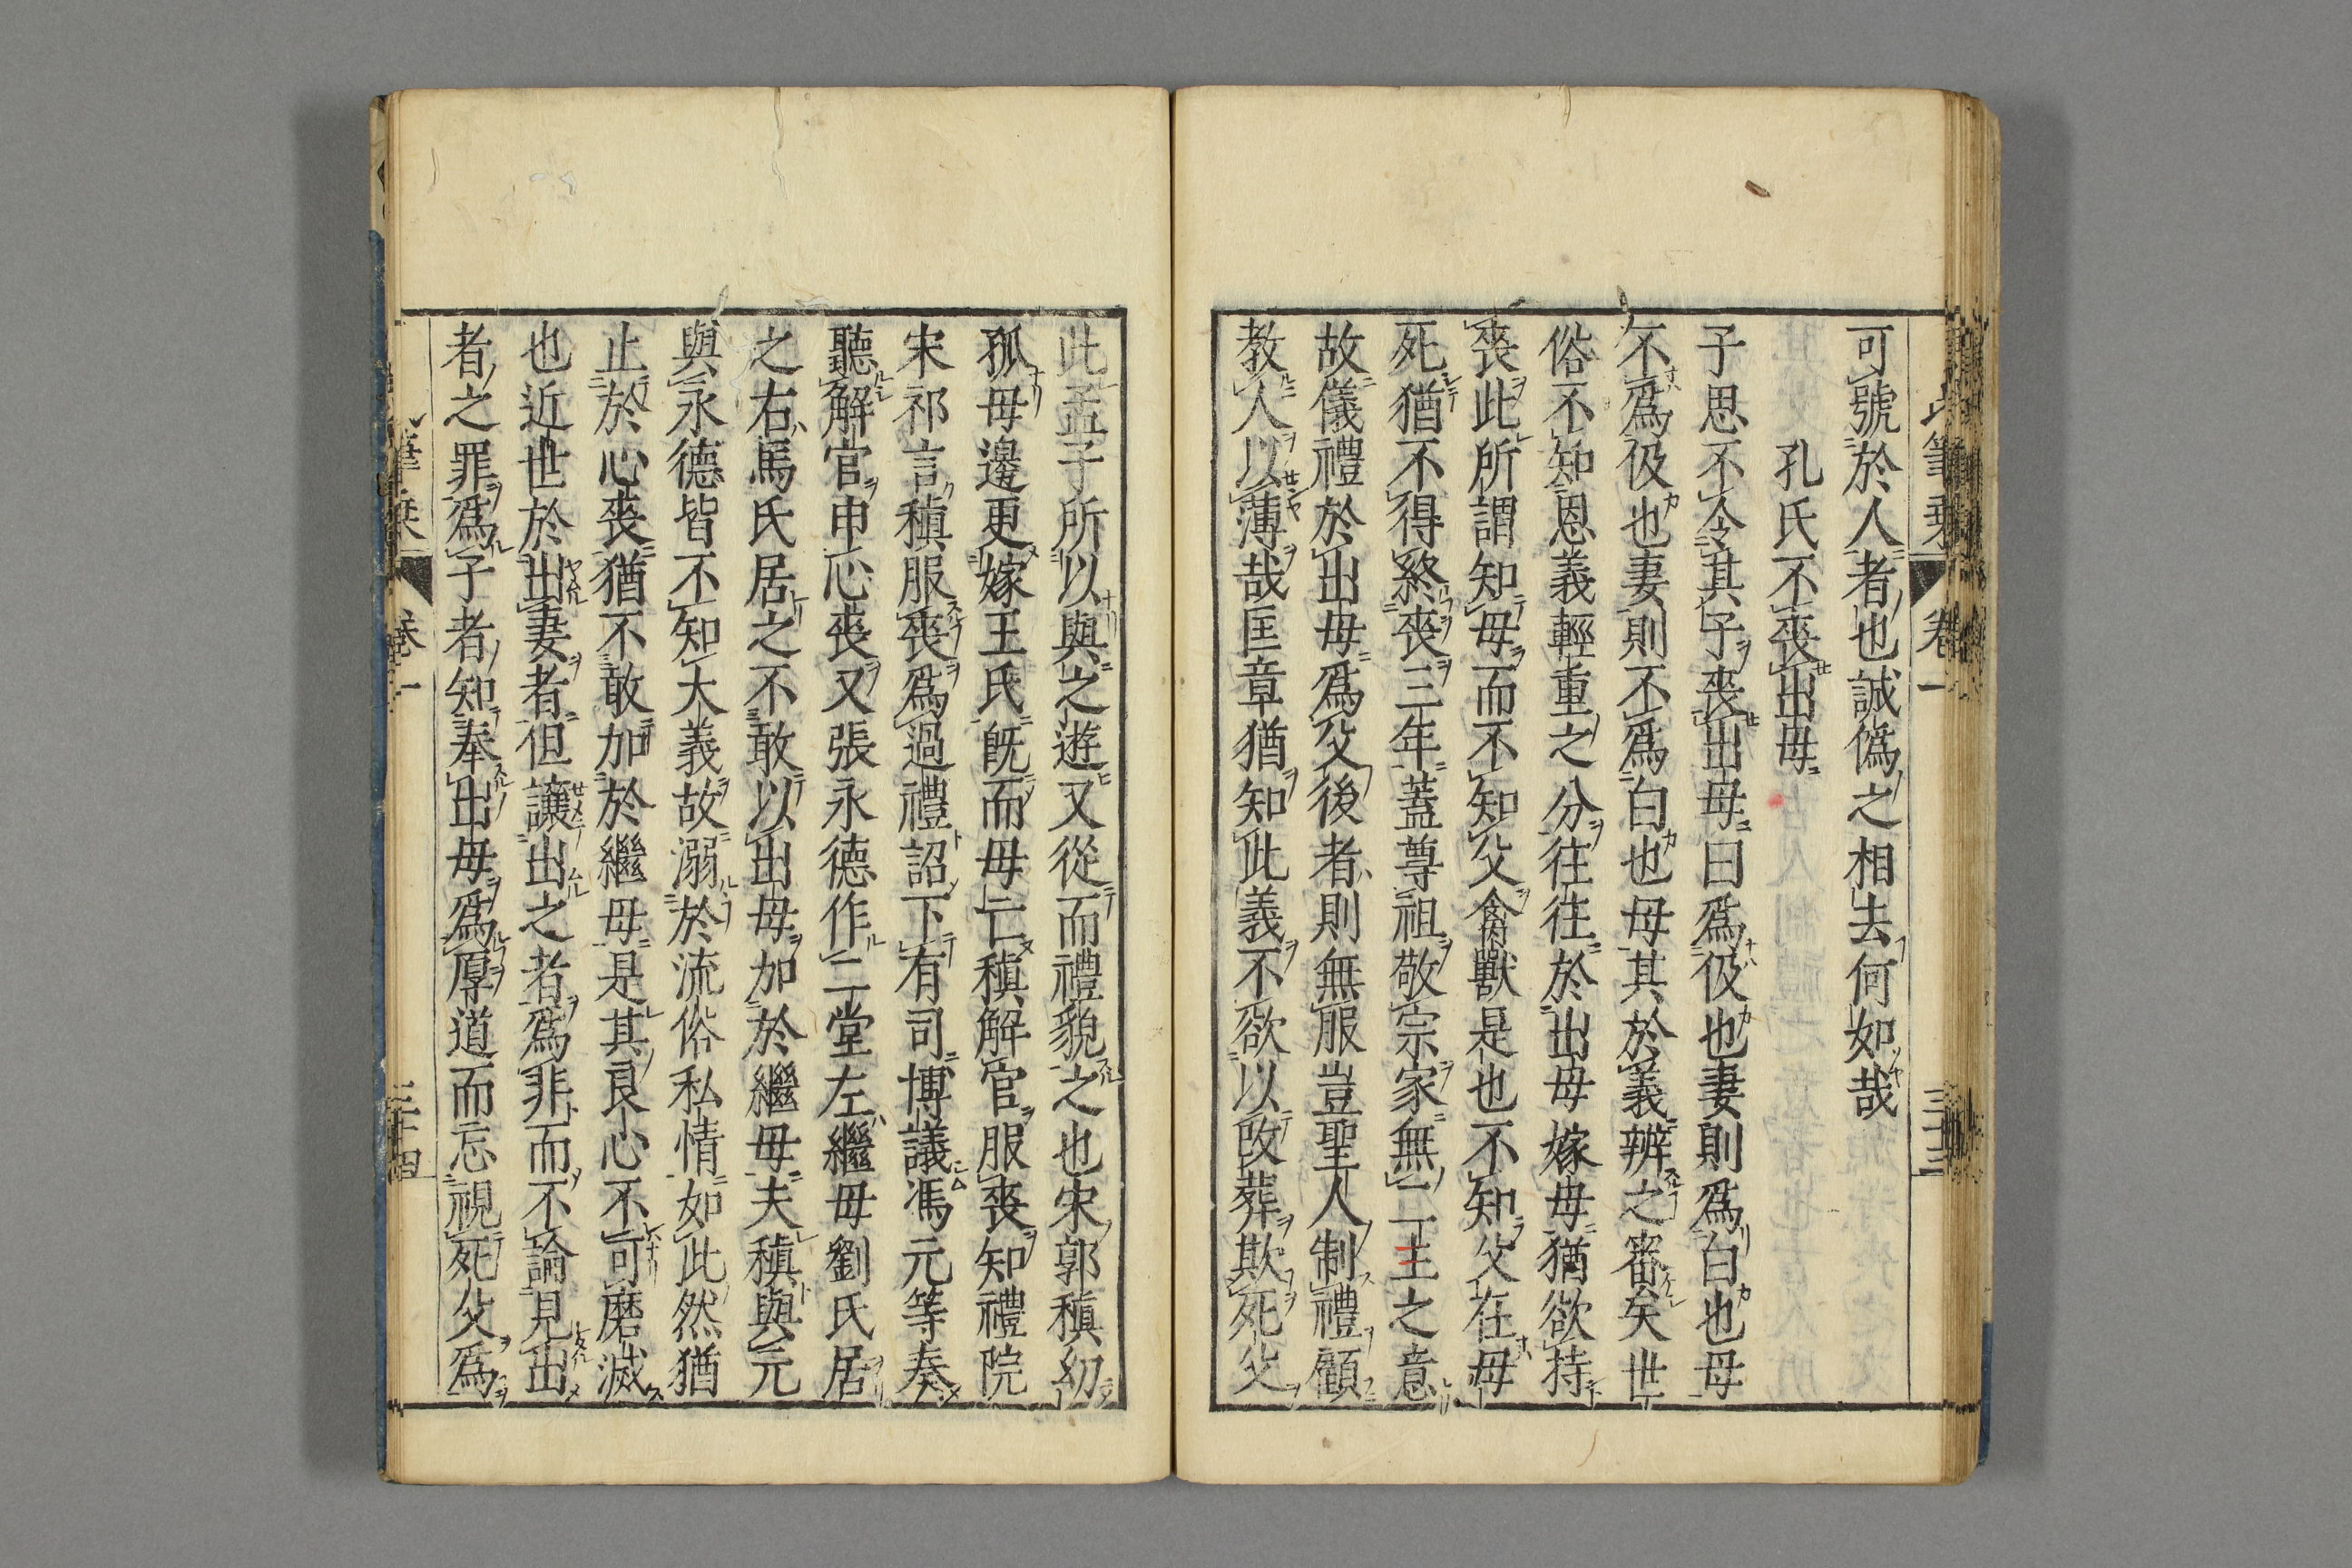 可號於人者也誠僞之相去何如哉
孔氏不喪出母
子思不令其子喪出母曰爲伋也妻則爲白也母
不爲伋也妻則不爲白也母其於義辨之審矣世
俗不知恩義輕重之分往往於出母嫁母猶欲持
喪此所謂知母而不知父禽獸是也不知父在母
死猶不得終喪三年蓋尊祖敬宗家無二主之意
故儀禮於出母爲父後者則無服豈聖人制禮顧
教人以薄哉匡章猶知此義不欲以改葬欺死父
筆乗 卷一 三十三
此孟子所以與之遊又從而禮貌之也宋郭稹幼
孤母邊更嫁王氏既而母亡稹解官服喪知禮院
宋祁言稹服喪爲過禮詔下有司博議馮元等奏
聽解官申心喪又張永德作二堂左繼母劉氏居
之右馬氏居之不敢以出母加於繼母夫稹與元
與永德皆不知大義故溺於流俗私情如此然猶
止於心喪猶不敢加於繼母是其良心不可磨滅
也近世於出妻者但讓出之者爲非而不論見出
者之罪爲子者知奉出母爲厚道而忘視死父爲
筆乗 卷一 三十四